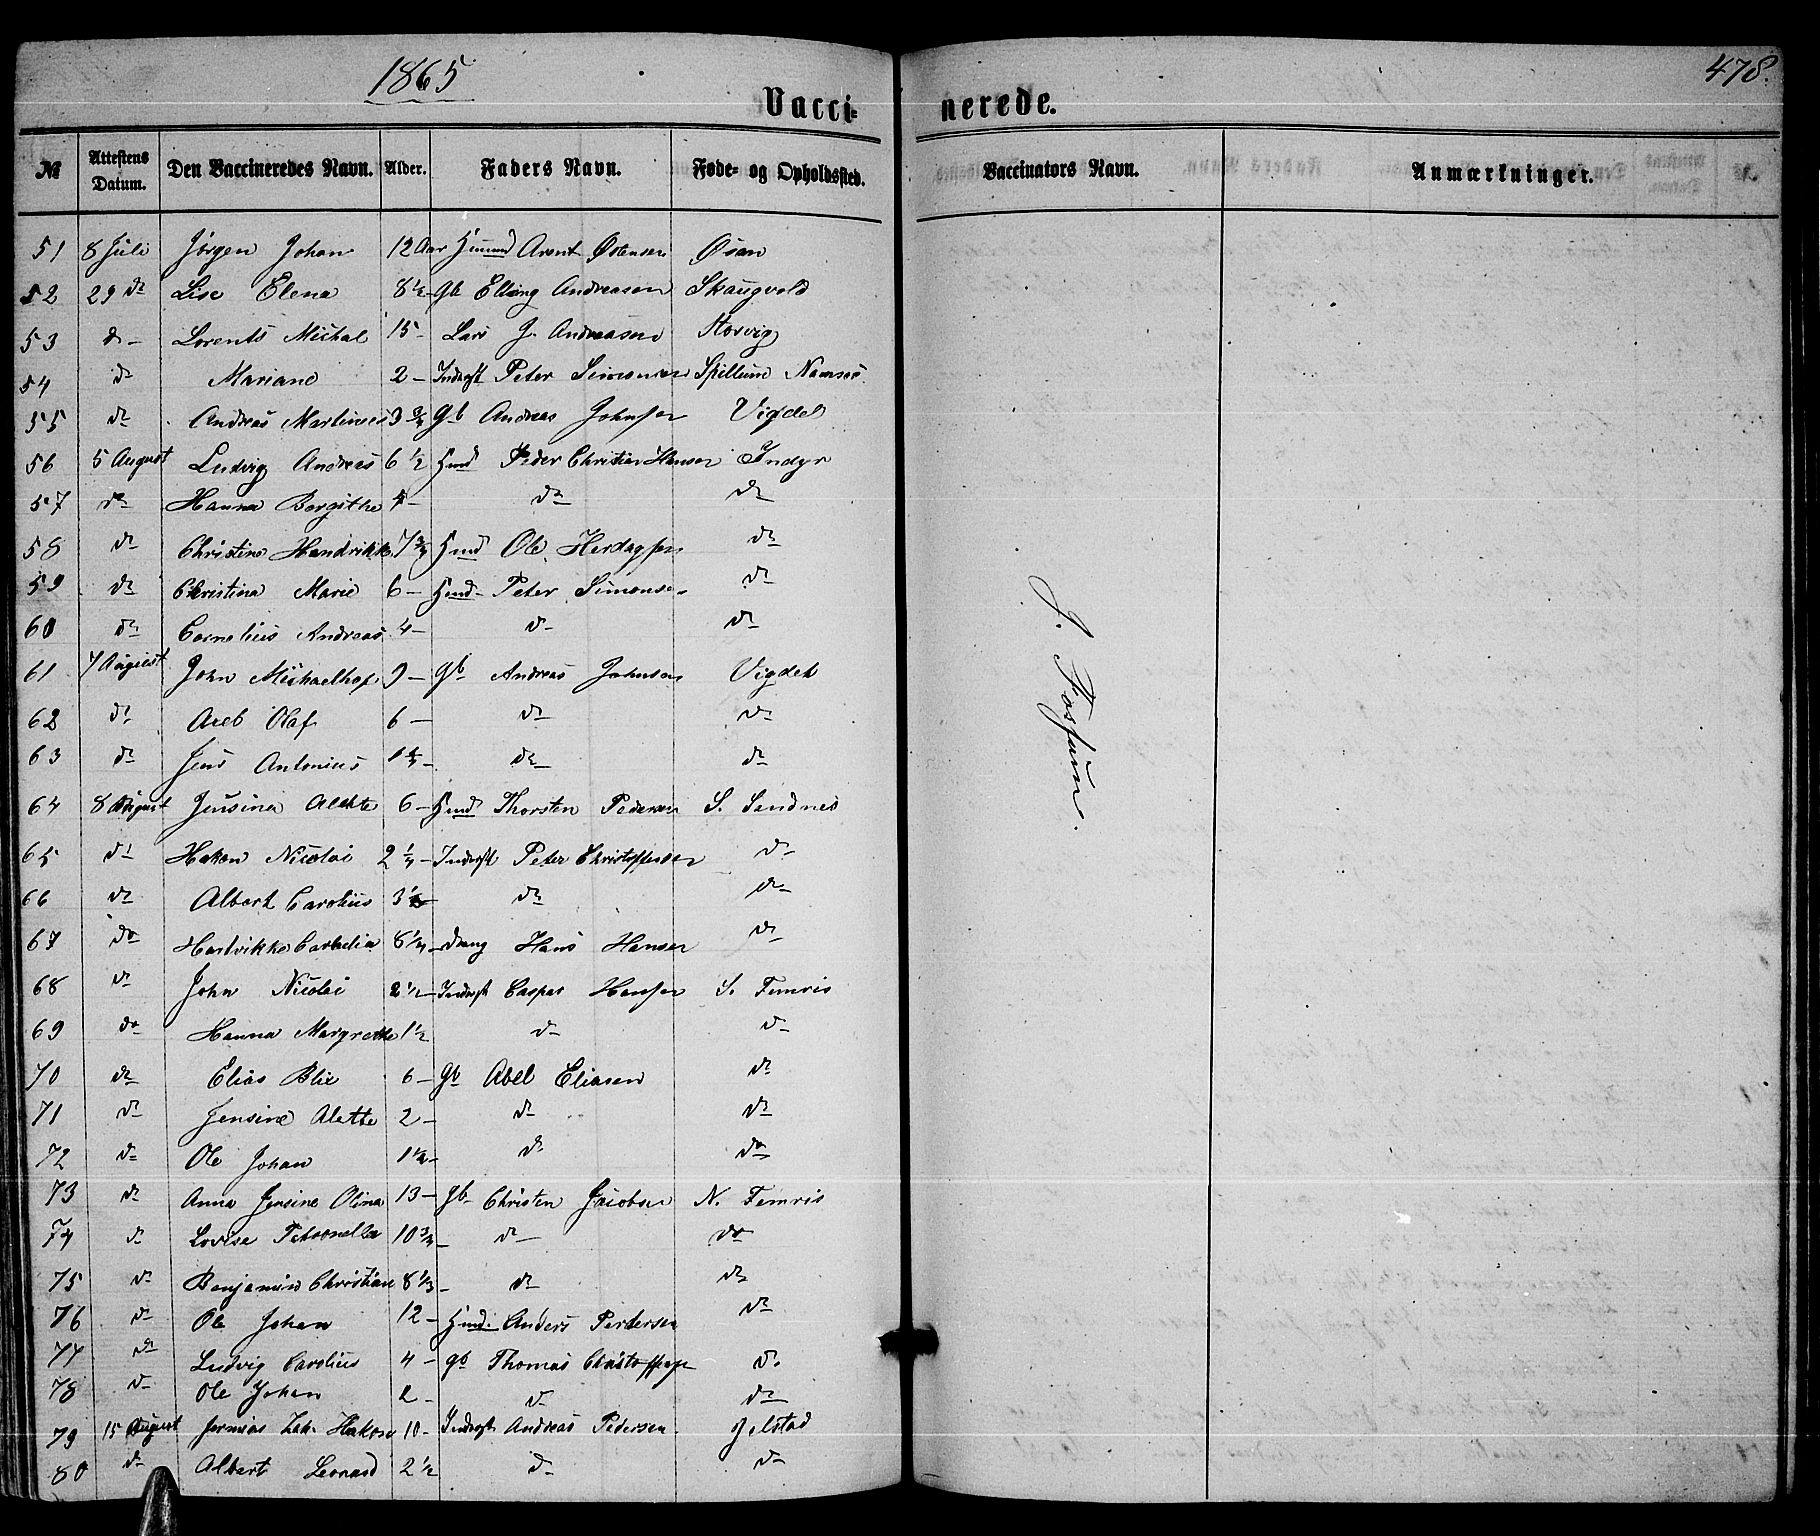 1865
478.
Vacci= nerede.
№ Attestens Datum. Den Vaccineredes Navn. Alder. Faders Navn. Føde- og Opholdssted. Vaccinators Navn. Anmærkninger.
51 8 Juli Jørgen Johan 12 Aar Arent Østensen Øsan
52 29 do Lise Elena 8½ – gb Elling Andreasen Skaugvold
53 do Lorents Michal 15 Lars J. Andreasen Storvig
54 do Mariane 2 – Inderst Peter Simonsen Spillum Namsos
55 do Andreas Martinus 3 ¾ gb Andreas Johnsen Vigdel
56 5 August Ludvig Andreas 6 ½ Hmd Peder Christian Hansen Indyr
57 do Hanna Bergithe do do
58 do Christine Hendrikke 7 ¾ Hmd Ole Herdagsen do
59 do Christina Marie 6 – Hmd – Peter Simonsen do
60 do Cornelius Andreas 4 – do do
61 7 August John Michaelhof 9 – gb Andreas Johnsen Vigdel
62 do Axel Olaf 6 – do do
63 do Jens Antonius do do
64 8 August Jensine Alette 6 – Hmd Thorsten Pedersen S. Sandnes
65 do Hakon Nicolai 2 ¼ – Inderst Peter Christoffersen do
66 do Albert Carolius do do
67 do Hartvikke Cornelia 8 ¼ – dreng Hans Hansen do
68 do John Nicolai 2 ½ – Inderst Caspar Hansen S. Femris
69 do Hanna Margrethe 1 ½ do do
70 do Elias Blix 6 – gb Abel Eliasen do
71 do Jensine Alette 2 – do do
72 do Ole Johan 1 ½ – do do
73 do Anna Jensine Olina 13 – gb – Christen Jacobsen N. Femris
74 do Lovise Petronella 10 ¾ – do do
75 do Benjamin Christian 8 ⅓ – do do
76 do Ole Johan 12 – Hmd. Anders Pedersen do
77 do Ludvig Carolius 4 – gb Thomas Christoffersen do
78 do Ole Johan 2 – do do
79 15 August Jermias Zak. Hakon 10 – Inderst Andreas Pedersen Gjelstad
80 do Albert Leonard 2 ½ do do
J. Fossum.